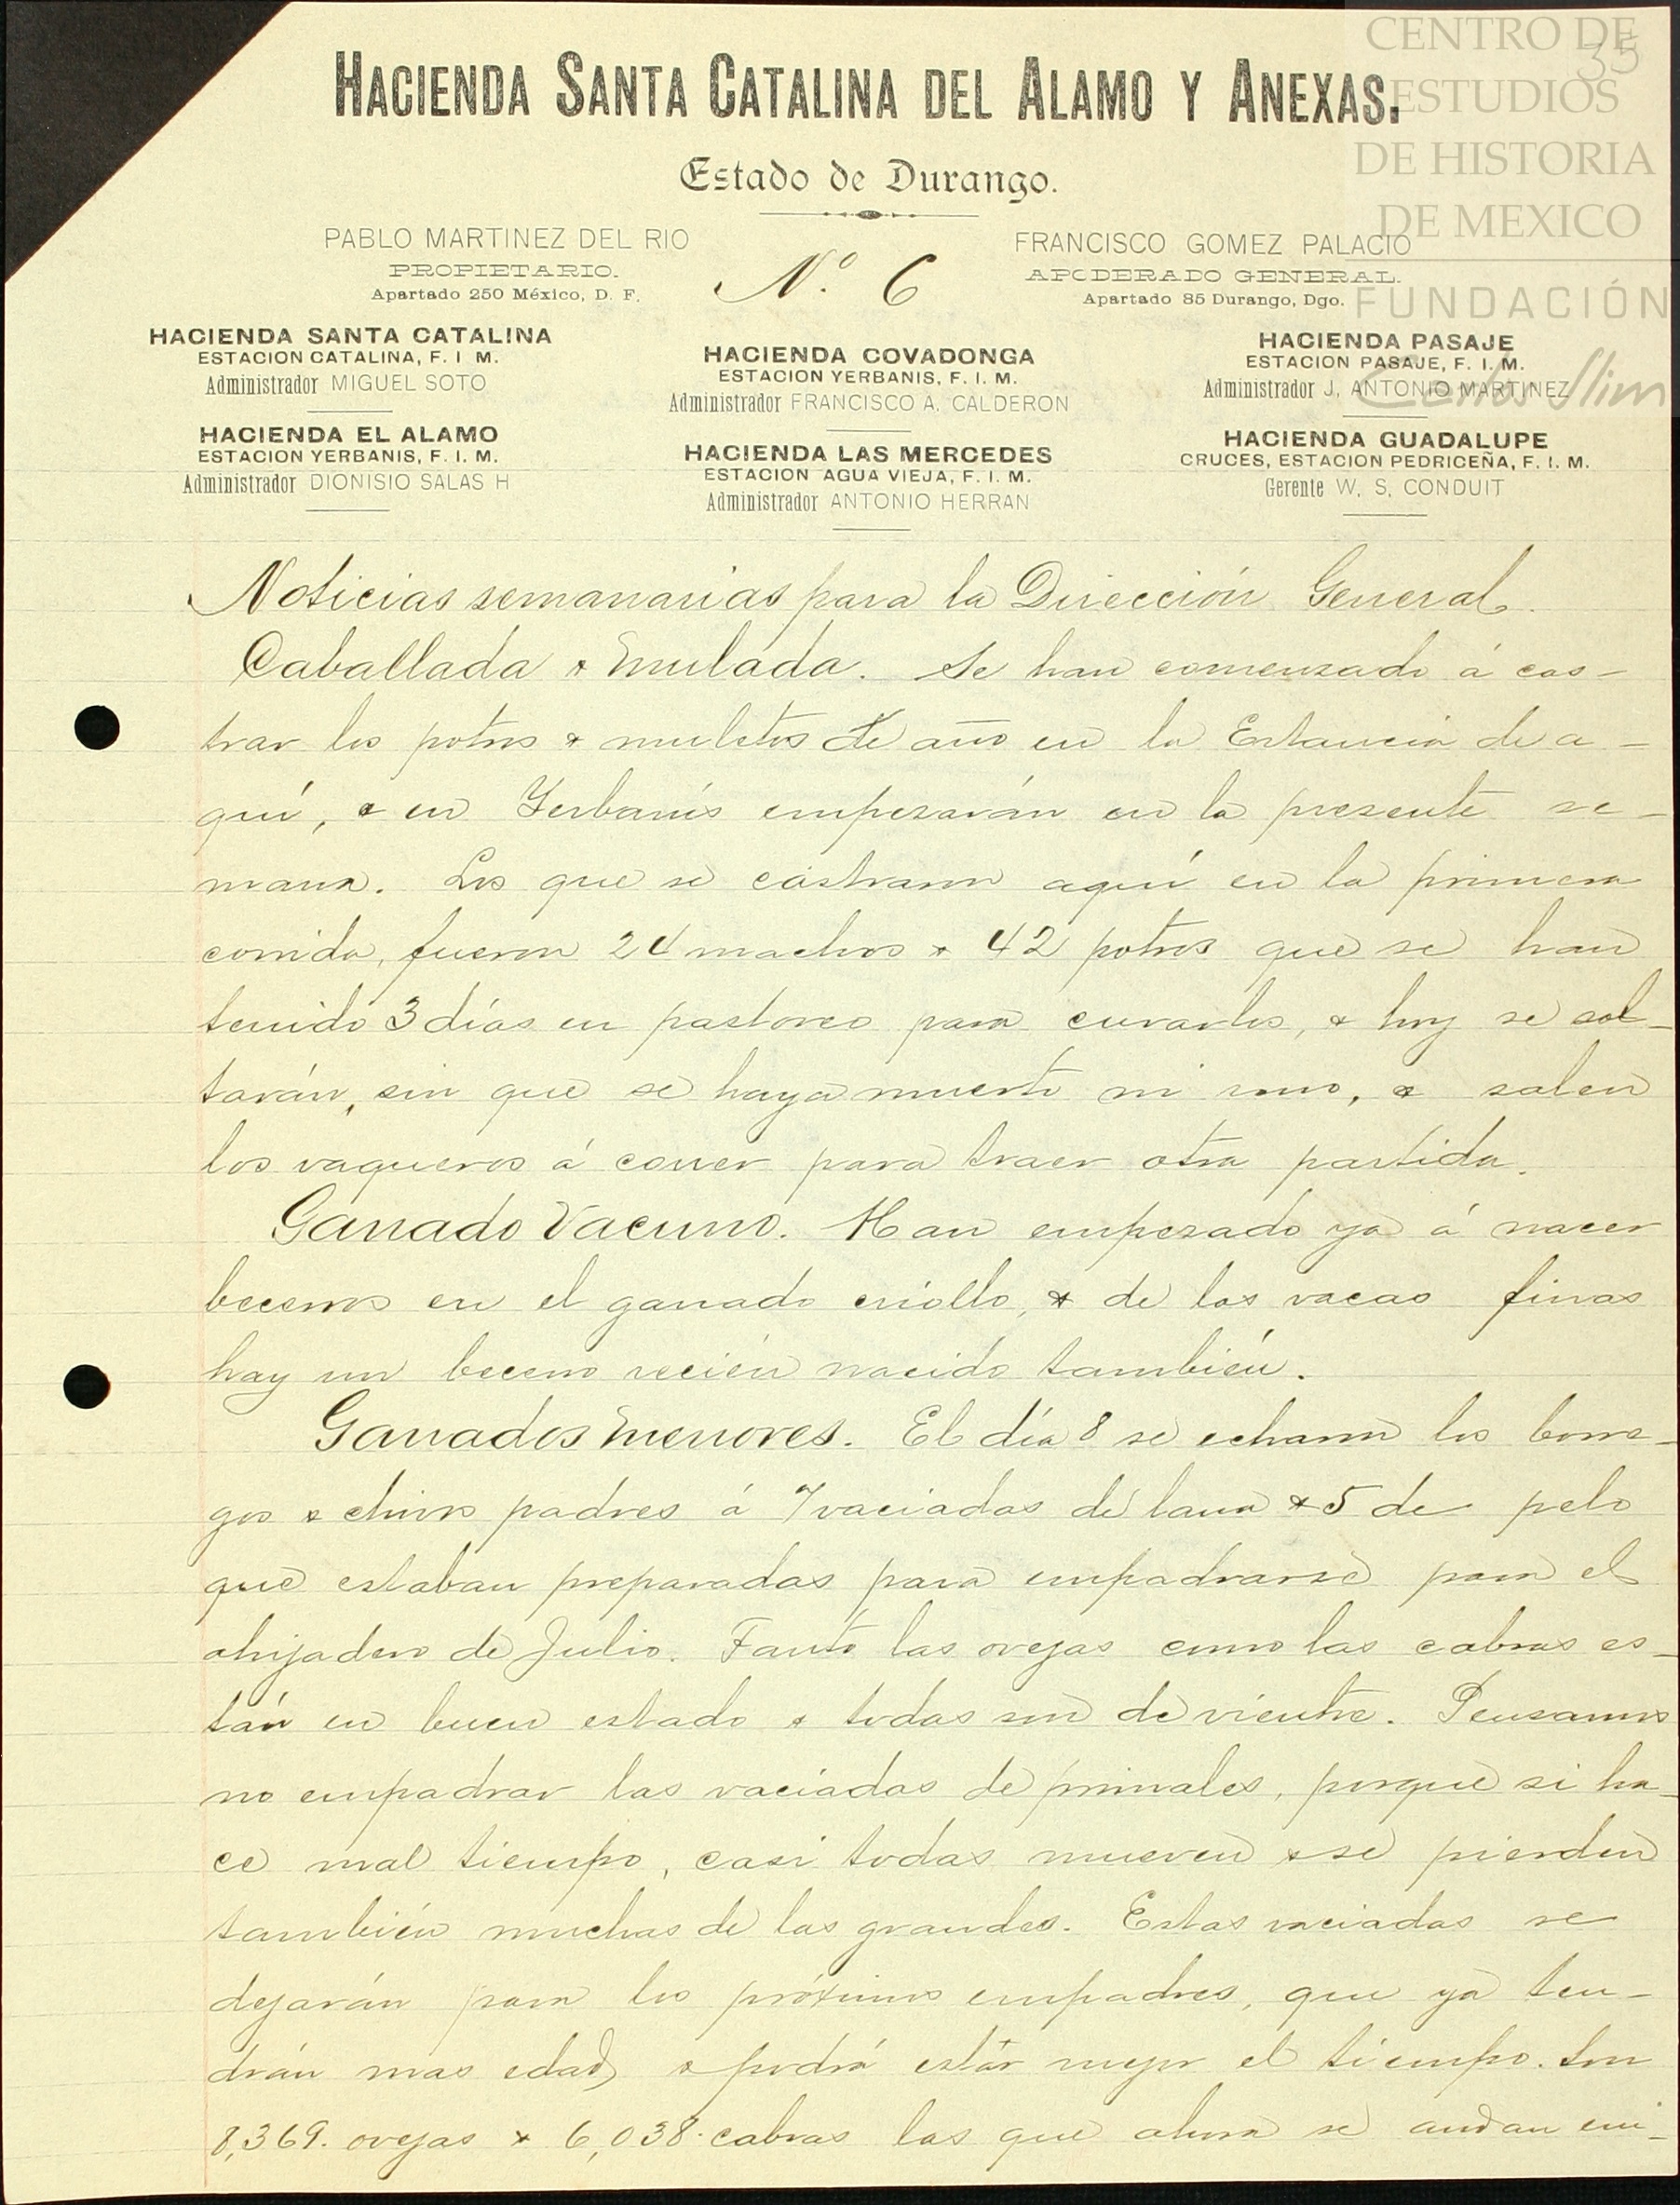 CENTRO DE
ESTUDIOS
DE HISTORIA
DE MEXICO
FUNDACIÓN
Carlos Slim
35
HACIENDA SANTA CATALINA DEL ALAMO Y ANEXAS.
Estado de Durango.
PABLO MARTINEZ DEL RIO
PROPIETARIO.
Apartado 250 México, D. F.
Nº. 6
FRANCISCO GOMEZ PALACIO
APODERADO GENERAL.
Apartado 85 Durango, Dgo.
HACIENDA SANTA CATALINA
ESTACION CATALINA, F. I M.
Administrador MIGUEL SOTO
HACIENDA EL ALAMO
ESTACION YERBANIS, F. I. M.
Administrador DIONISIO SALAS H
HACIENDA COVADONGA
ESTACION YERBANIS, F. I. M.
Administrador FRANCISCO A. CALDERON
HACIENDA LAS MERCEDES
ESTACION AGUA VIEJA, F. I. M.
Administrador ANTONIO HERRAN
HACIENDA PASAJE
ESTACION PASAJE, F. I. M.
Administrador J. ANTONIO MARTINEZ
HACIENDA GUADALUPE
CRUCES, ESTACION PEDRICEÑA, F. I. M.
Gerente W. S. CONDUIT
Noticias semanarias para la Dirección General.
Caballada & mulada. Se han comenzado á cas-
trar los potros & muletos de año en la Estancia de a-
quí, & en Yerbanís empezarán en la presente se-
mana. Los que se castraron aquí en la primera
corrida, fueron 24 machos & 42 potros que se han
tenido 3 días en pastoreo para curarlos, & hoy se sol-
tarán, sin que se haya muerto ni uno, & salen
los vaqueros á correr para traer otra partida.
Ganado Vacuno. Han empezado ya á nacer
becerros en el ganado criollo, & de las vacas finas
hay un becerro recién nacido también.
Ganados menores. El día 8 se echaron los borre-
gos & chivos padres á 7 vaciadas de lana & 5 de pelo
que estaban preparadas para empadrarse para el
ahijadero de Julio. Tanto las ovejas como las cabras es-
tán en buen estado & todas son de vientre. Pensamos
no empadrar las vaciadas de primales, porque si ha-
ce mal tiempo, casi todas mueren & se pierden
también muchas de las grandes. Estas vaciadas se
dejarán para los próximos empadres, que ya ten-
drán mas edad & podrá estár mejor el tiempo. Son
8,369. ovejas & 6,038. cabras las que ahora se andan em-